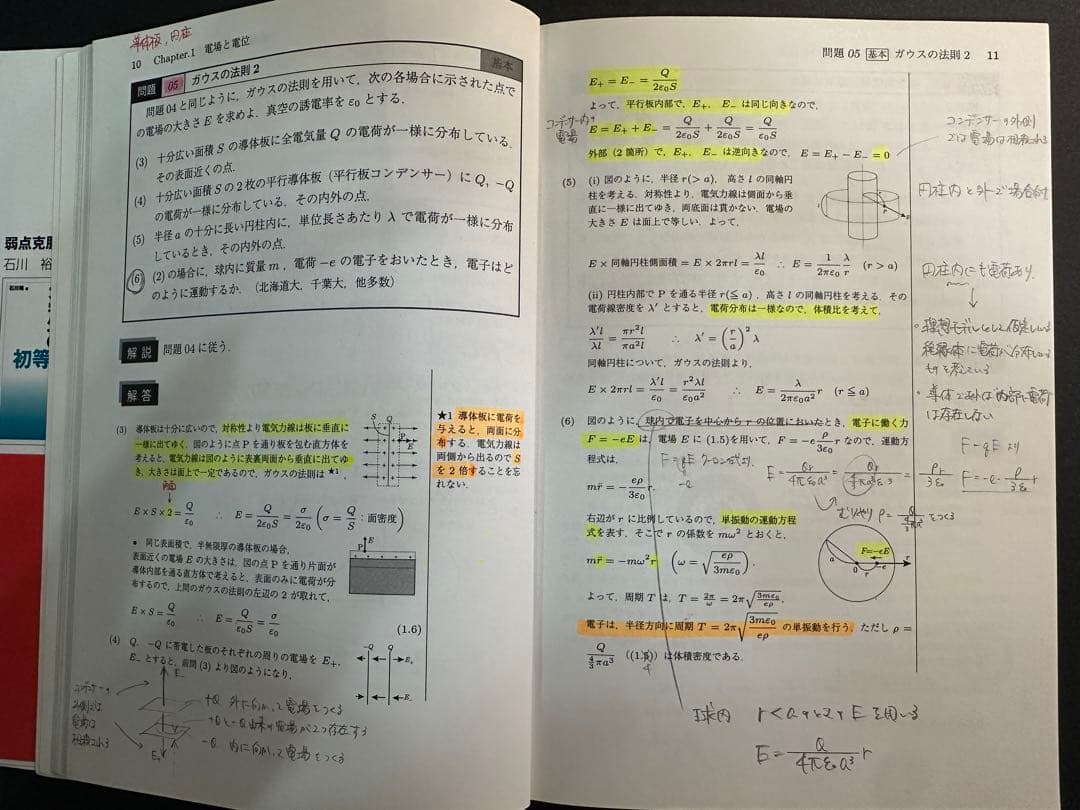 導体板,円柱
10 Chapter.1 電場と電位
問題 05 ガウスの法則 2 基本
問題 04 と同じように,ガウスの法則を用いて,次の各場合に示された点で
の電場の大きさ E を求めよ.真空の誘電率を ε₀ とする.
(3) 十分広い面積 S の導体板に全電気量 Q の電荷が一様に分布している.
その表面近くの点.
(4) 十分広い面積 S の 2 枚の平行導体板(平行板コンデンサー)に Q, −Q
の電荷が一様に分布している.その内外の点.
(5) 半径 a の十分に長い円柱内に,単位長さあたり λ で電荷が一様に分布
しているとき,その内外の点.
(6) (2) の場合に,球内に質量 m,電荷 −e の電子をおいたとき,電子はど
のように運動するか.(北海道大,千葉大,他多数)
解説 問題 04 に従う.
解答
(3) 導体板は十分に広いので,対称性より電気力線は板に垂直に
一様に出てゆく.図のように点 P を通り板を包む直方体を
考えると,電気力線は図のように表裏両面から垂直に出てゆ
き,大きさは面上で一定であるので,ガウスの法則は ★1,
両面
E × S × 2 = Q/ε₀ ∴ E = Q/2ε₀S = σ/2ε₀ (σ = Q/S : 面密度)
S P E
★1 導体板に電荷を
与えると,両面に分
布する.電気力線は
両側から出るので S
を 2 倍することを忘
れない.
● 同じ表面積で,半無限厚の導体板の場合,
表面近くの電場 E の大きさは,図の点 P を通り片面が
導体内部を通る直方体で考えると,表面のみに電荷が分
布するので,上間のガウスの法則の左辺の 2 が取れて,
P E
E × S = Q/ε₀ ∴ E = Q/ε₀S = σ/ε₀ (1.6)
(4) Q, −Q に帯電した板のそれぞれの周りの電場を E₊,
E₋ とすると,前問 (3) より図のようになり,
−Q Q E₊
E₋
コンデンサーの
外側では
電場は
相殺される
E₋
E₊
+Q 外に向かって電場をつくる
+Qと−Q由来の電場が2つ存在する
−Q 内に向かって電場をつくる
問題 05 基本 ガウスの法則 2 11
E₊ = E₋ = Q/2ε₀S
よって,平行板内部で,E₊, E₋ は同じ向きなので,
コンデンサー内の
電場
E = E₊ + E₋ = Q/2ε₀S + Q/2ε₀S = Q/ε₀S
外部(2 箇所)で,E₊, E₋ は逆向きなので,E = E₊ − E₋ = 0
コンデンサーの外側
では電場は相殺される
(5) (i) 図のように,半径 r(> a),高さ l の同軸円柱
を考える.対称性より,電気力線は側面から垂
直に一様に出てゆき,両底面は貫かない.電場の
大きさ E は面上で等しい.よって,
円柱内と外で場合分け
E × 同軸円柱側面積 = E × 2πrl = λl/ε₀ ∴ E = 1/2πε₀ λ/r (r > a)
円柱内にも電荷あり.
(ii) 円柱内部で P を通る半径 r(≦ a),高さ l の同軸円柱を考える.その
電荷線密度を λ′ とすると,電荷分布は一様なので,体積比を考えて,
λ′l/λl = πr²l/πa²l ∴ λ′ = (r/a)² λ
・理想モデルとして仮定している
絶縁体に電荷が分布している
・導体であれば内部に電荷
は存在しない
同軸円柱について,ガウスの法則より,
E × 2πrl = λ′l/ε₀ = r²λl/ε₀a² ∴ E = λ/2πε₀a² r (r ≦ a)
(6) 図のように,球内で電子を中心から r の位置においたとき,電子に働く力
F = −eE は,電場 E に (1.5) を用いて,F = −e ρ/3ε₀ r なので,運動方
程式は,
F = qE クーロン力より.
−e
E = Qr/4πε₀a³ = Qr/4πa³ε₀·3 = ρr/3ε₀
F = qE より
F = −e・ρ/3ε₀ r
むりやり ρ = Q/(4/3)πa³ をつくる
mr̈ = −eρ/3ε₀ r.
右辺が r に比例しているので,単振動の運動方程
式を表す.そこで r の係数を mω² とおくと,
mr̈ = −mω²r (ω = √(eρ/3mε₀)).
a O r −e r
F=−eE
よって,周期 T は,T = 2π/ω = 2π√(3mε₀/eρ).
電子は,半径方向に周期 T = 2π√(3mε₀/eρ) の単振動を行う.ただし ρ =
Q/(4/3)πa³ ((1.4)) は体積密度である.
球内 r<a のときの E を用いる
E = Q/4πε₀a³ r
弱点克服
石川 裕
初等